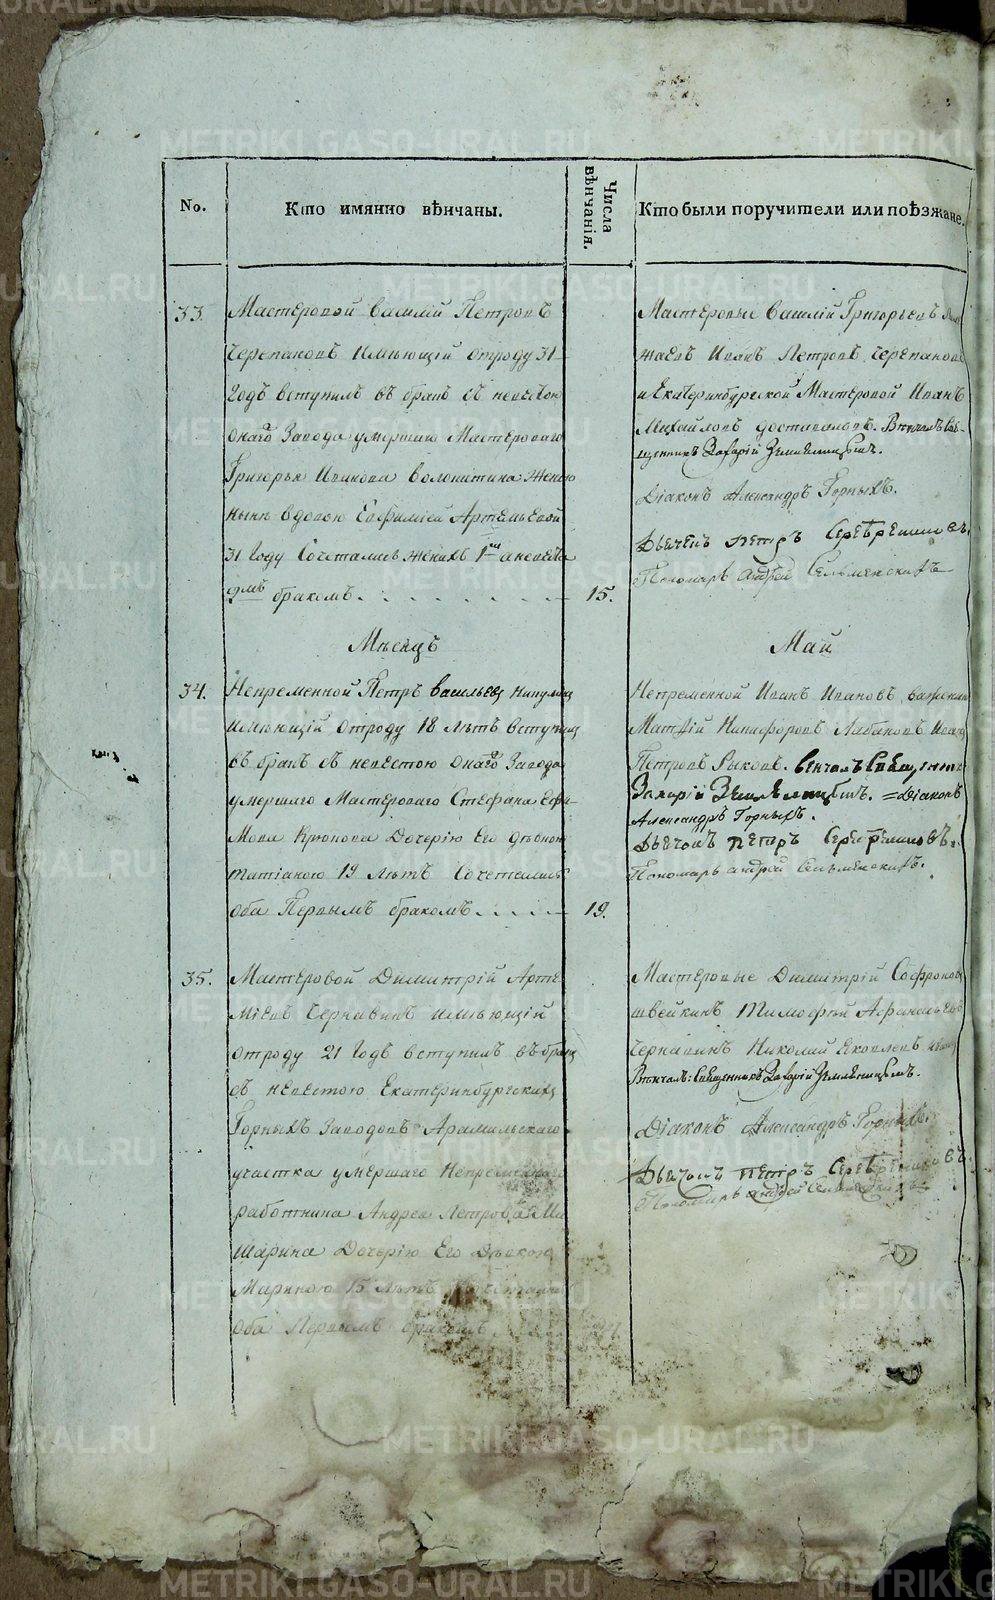 No.
Кто имянно вѣнчаны.
Числа вѣнчанія.
Кто были поручители или поѣзжане.
33.
Мастеровой Василий Петровъ
Черепановъ имѣющій отроду 31
годъ вступилъ въ бракъ съ невестою
онаго Завода умершаго Мастероваго
Григорья Иванова Волокитина женою
нынѣ вдовою Евфиміей Артемьевой
31 году Сочетались женихъ 1мъ а невеста
бракомъ
15.
Мастеровые Василій Григорьевъ
Иванъ Петровъ Черепановъ
и Екатеринбургской Мастеровой Иванъ
Михайловъ Вѣнчалъ Свя-
щенникъ Захарій Земляницынъ.
Діаконъ Александръ Горныхъ.
Дьячекъ Петръ Серебренниковъ.
Пономарь Андрей Сельменскихъ
Мѣсяцъ
Май
34.
Непременной Петръ Васильевъ
имѣющій отроду 18 лѣтъ вступилъ
въ бракъ съ невестою онаго Завода
умершаго Мастероваго Стефана Ефи-
мова Крюкова дочерію его дѣвкою
Татіаною 19 лѣтъ Сочетались
оба Первымъ бракомъ
19.
Непременной Иванъ Ивановъ
Матфій Никифоровъ Лабановъ Иванъ
Петровъ Рыковъ. Венчалъ Священникъ
Захарій Земляницынъ. =Діаконъ
Александръ Горныхъ.
Дьячокъ Петръ Серебренниковъ.
Пономарь Андрей Сельменскихъ.
35.
Мастеровой Димитрій Арте-
міевъ Чернавинъ имѣющій
отроду 21 годъ вступилъ въ бракъ
съ невестою Екатеринбургскихъ
Горныхъ Заводовъ Арамильскаго
участка умершаго Непременнаго
работника Андрея Петрова
дочерію его Дѣвкою
Мариною 15 лѣтъ Сочетались
оба Первымъ бракомъ
Мастеровые Димитрій Софроновъ
Швейкинъ Тимофѣй Афанасьевъ
Чернавинъ Николай Яковлевъ
Вѣнчалъ: Священникъ Захарій Земляницынъ.
Діаконъ Александръ Горныхъ.
Дьячокъ Петръ Серебренниковъ.
Пономарь Андрей Сельменскихъ
METRIKI.GASO-URAL.RU